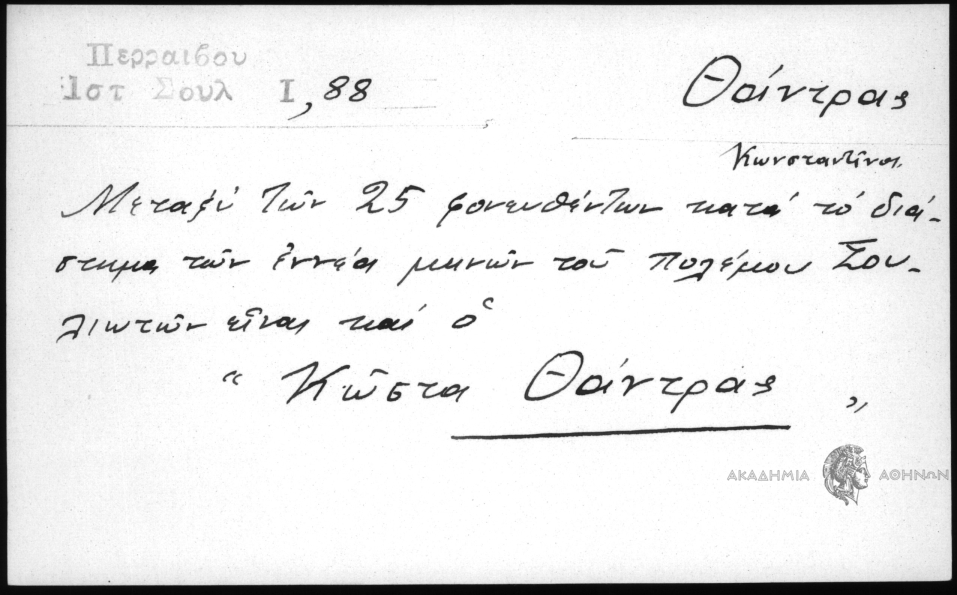 Περραιβου
Ιστ Σουλ Ι, 88
Θάντρας
Κωνσταντῖνος
Μεταξύ τῶν 25 φονευθέντων κατά τό διά-
στημα τῶν ἐννέα μηνῶν τοῦ πολέμου Σου-
λιωτῶν εἶναι καί ὁ
“ Κῶστα Θάντρας „
ΑΚΑΔΗΜΙΑ ΑΘΗΝΩΝ